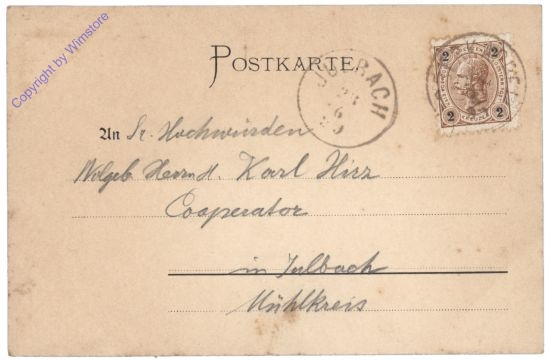 Copyright by Wimstore
POSTKARTE.
2 2
2 2
An Sr. Hochwürden
Wolgeb. Herrn H. Karl Hirz
Cooperator
in Julbach
Mühlkreis